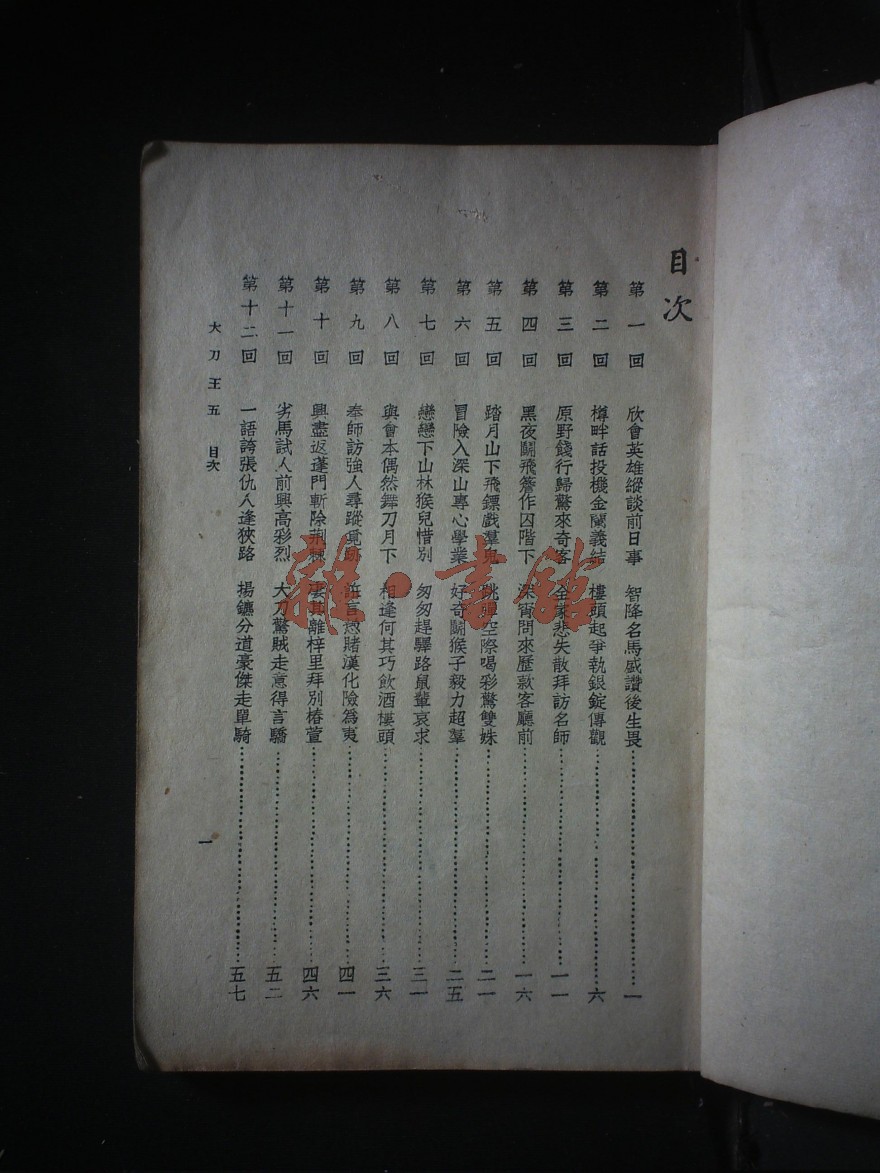 目次
第一回 欣會英雄縱談前日事 智降名馬感讚後生畏 一
第二回 樽畔話投機金蘭義結 樓頭起爭執銀錠傳觀 六
第三回 原野餞行歸驚來奇客 全篆悲失散拜訪名師 一一
第四回 黑夜鬭飛簷作囚階下 深宵問來歷款客廳前 一六
第五回 踏月山下飛鏢戲羣 跳彈空際喝彩驚雙姝 二一
第六回 冒險入深山專心學業 好奇鬭猴子毅力超羣 二五
第七回 戀戀下山林猴兒惜別 匆匆趕驛路鼠輩哀求 三一
第八回 與會本偶然舞刀月下 相逢何其巧飲酒樓頭 三六
第九回 奉師訪強人尋蹤覓跡 言賭漢化險為夷 四一
第十回 興盡返蓬門斬除荆棘 其離梓里拜別椿萱 四六
第十一回 劣馬試人前興高彩烈 大刀驚賊走意得言驕 五二
第十二回 一語誇張仇人逢狹路 揚鑣分道豪傑走單騎 五七
大刀王五 目次
一
雜·書館